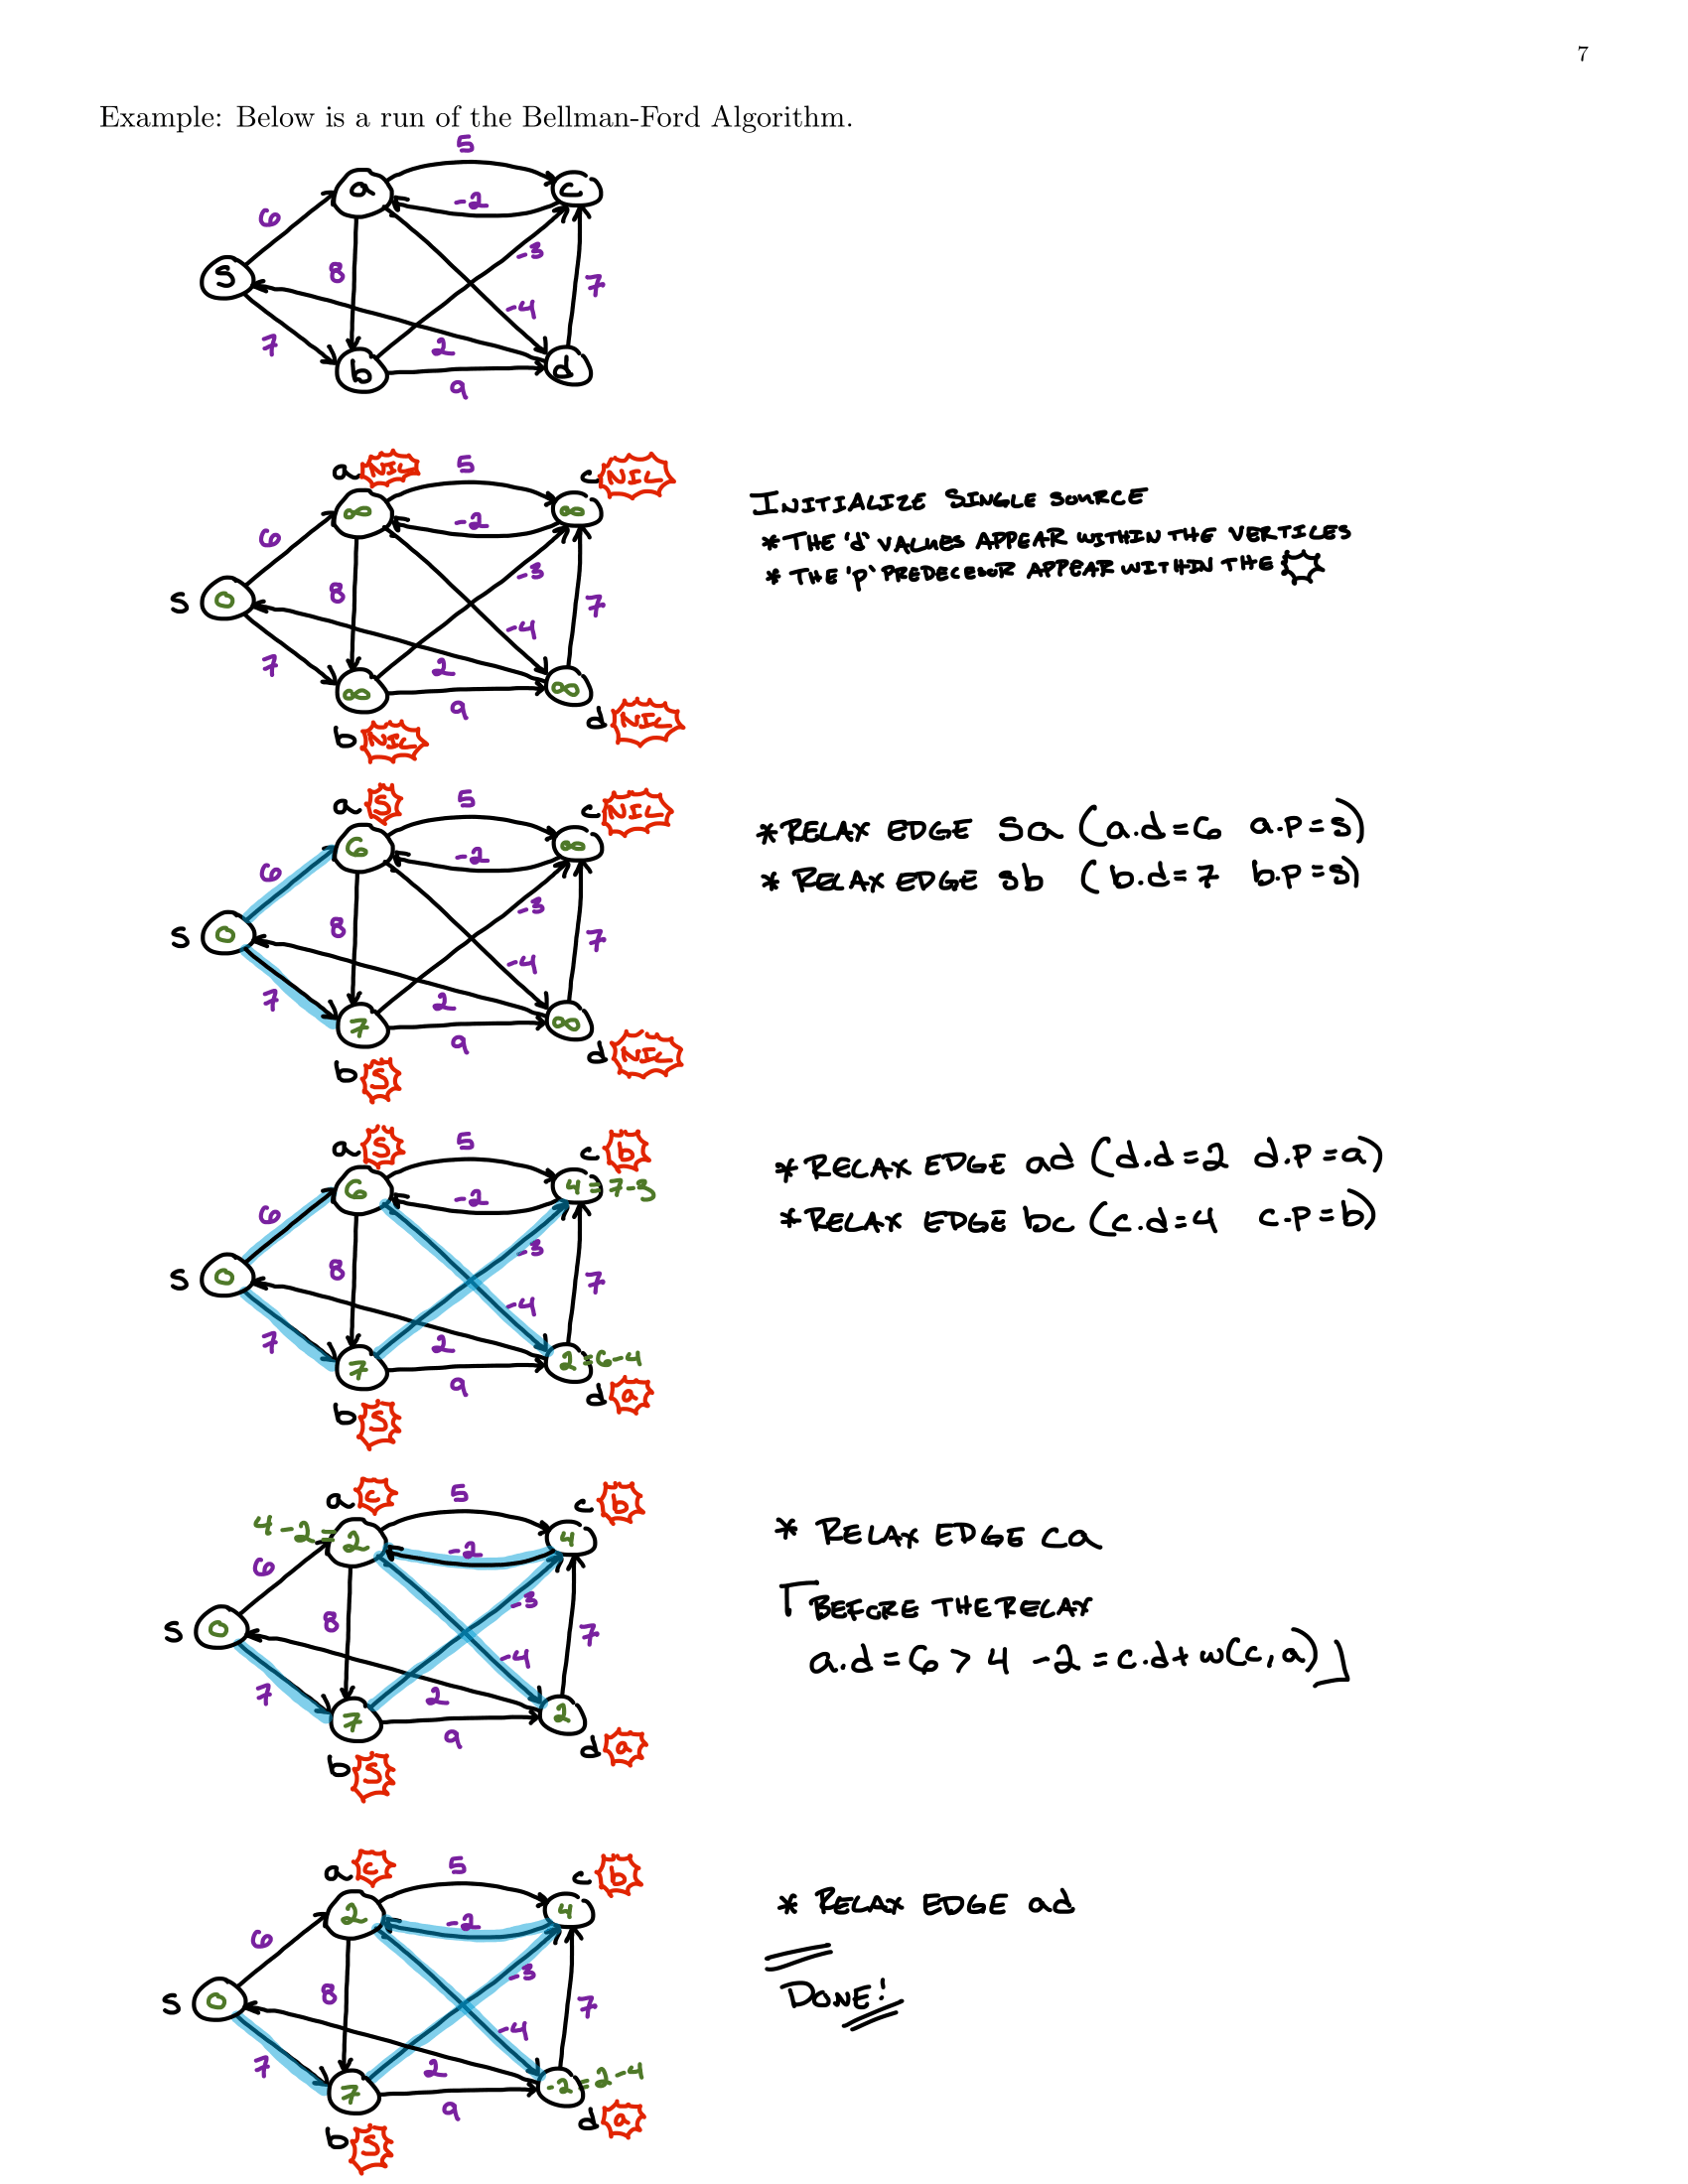 7
Example: Below is a run of the Bellman-Ford Algorithm.
5
a
c
-2
6
-3
S
8
7
-4
7
2
b
d
9
a NIL
5
c NIL
∞
∞
-2
6
-3
S
0
8
7
-4
7
2
∞
∞
9
b NIL
d NIL
INITIALIZE SINGLE SOURCE
* THE 'd' VALUES APPEAR WITHIN THE VERTICES
* THE 'p' PREDECESOR APPEAR WITHIN THE
a S
5
c NIL
6
∞
-2
6
-3
S
0
8
7
-4
7
2
7
∞
9
b S
d NIL
* RELAX EDGE sa (a.d=6 a.p=s)
* RELAX EDGE sb (b.d=7 b.p=s)
a S
5
c b
6
4=7-3
-2
6
-3
S
0
8
7
-4
7
2
7
2=6-4
9
b S
d a
* RELAX EDGE ad (d.d=2 d.p=a)
* RELAX EDGE bc (c.d=4 c.p=b)
a c
5
c b
4-2=2
4
-2
6
-3
S
0
8
7
-4
7
2
7
2
9
b S
d a
* RELAX EDGE ca
BEFORE THE RELAX
a.d=6 > 4 -2 = c.d+ w(c,a)
a c
5
c b
2
4
-2
6
-3
S
0
8
7
-4
7
2
7
-2=2-4
9
b S
d a
* RELAX EDGE ad
DONE!